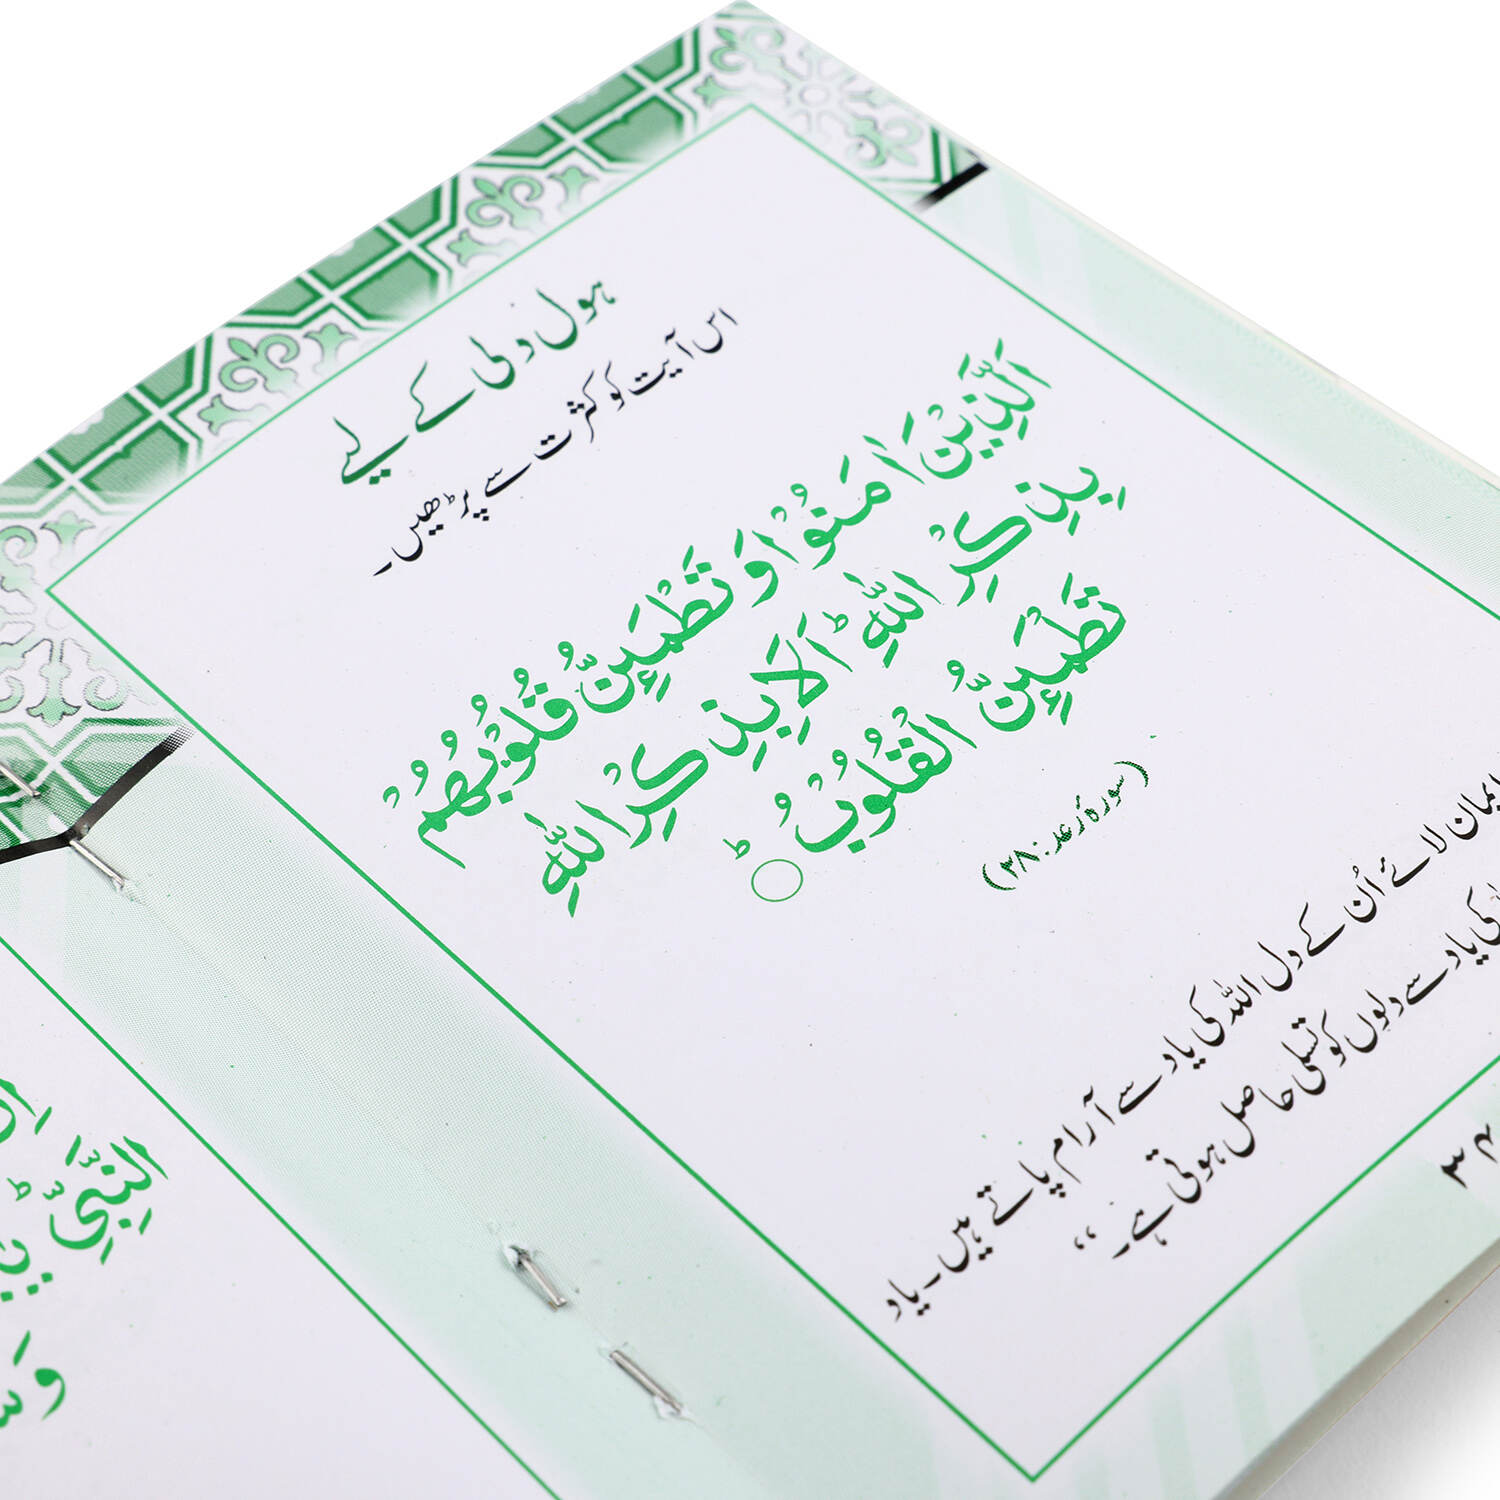 ہول دلی کے لیے
اس آیت کو کثرت سے پڑھیں۔
اَلَّذِیْنَ اٰمَنُوْا وَ تَطْمَىِٕنُّ قُلُوْبُهُمْ
بِذِكْرِ اللّٰهِؕ اَلَا بِذِكْرِ اللّٰهِ
تَطْمَىِٕنُّ الْقُلُوْبُؕ ○
(سورہ رعد: ۲۸)
ایمان لائے اُن کے دل اللہ کی یاد سے آرام پاتے ہیں۔ یاد
کی یاد سے دلوں کو تسلی حاصل ہوتی ہے۔“
۳۴
النَّبِیِّ